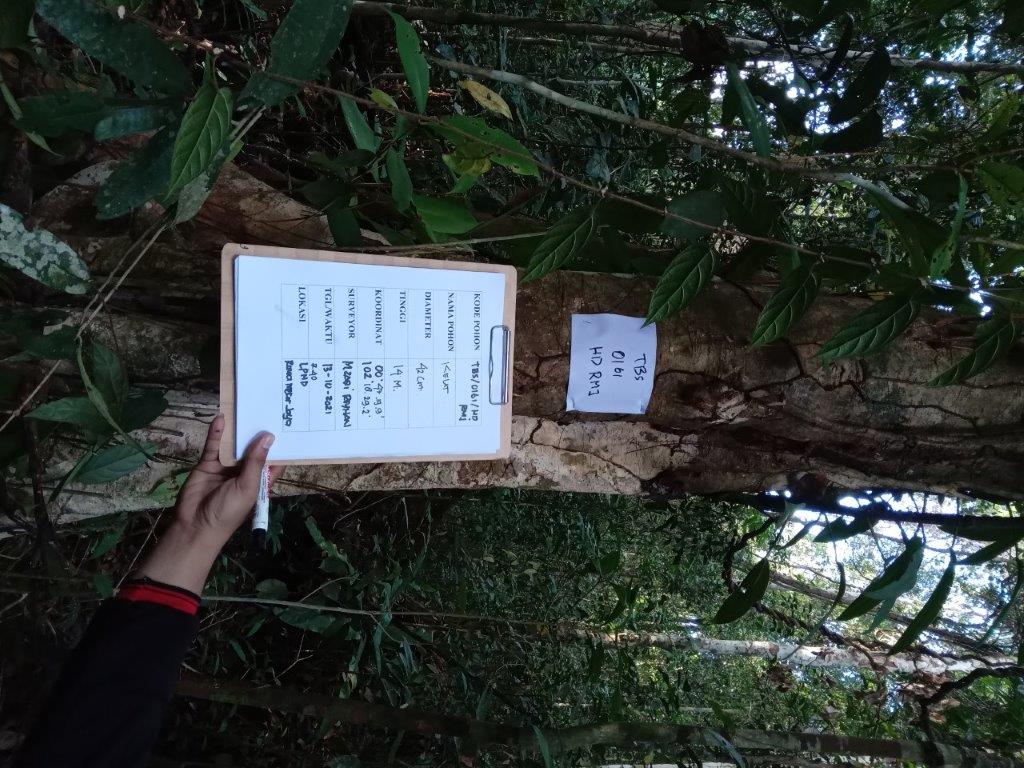 TBS
0161
HD RMJ
KODE POHON TBS/0161/HD
RMJ
NAMA POHON KELAT
DIAMETER 42 Cm.
TINGGI 14 M.
KOORDINAT 00°47'19.9"
102°16'29.2"
SURVEYOR M ZAQI RAYHAN
TGL/WAKTU 13-10-2021
7.40
LOKASI LPHD